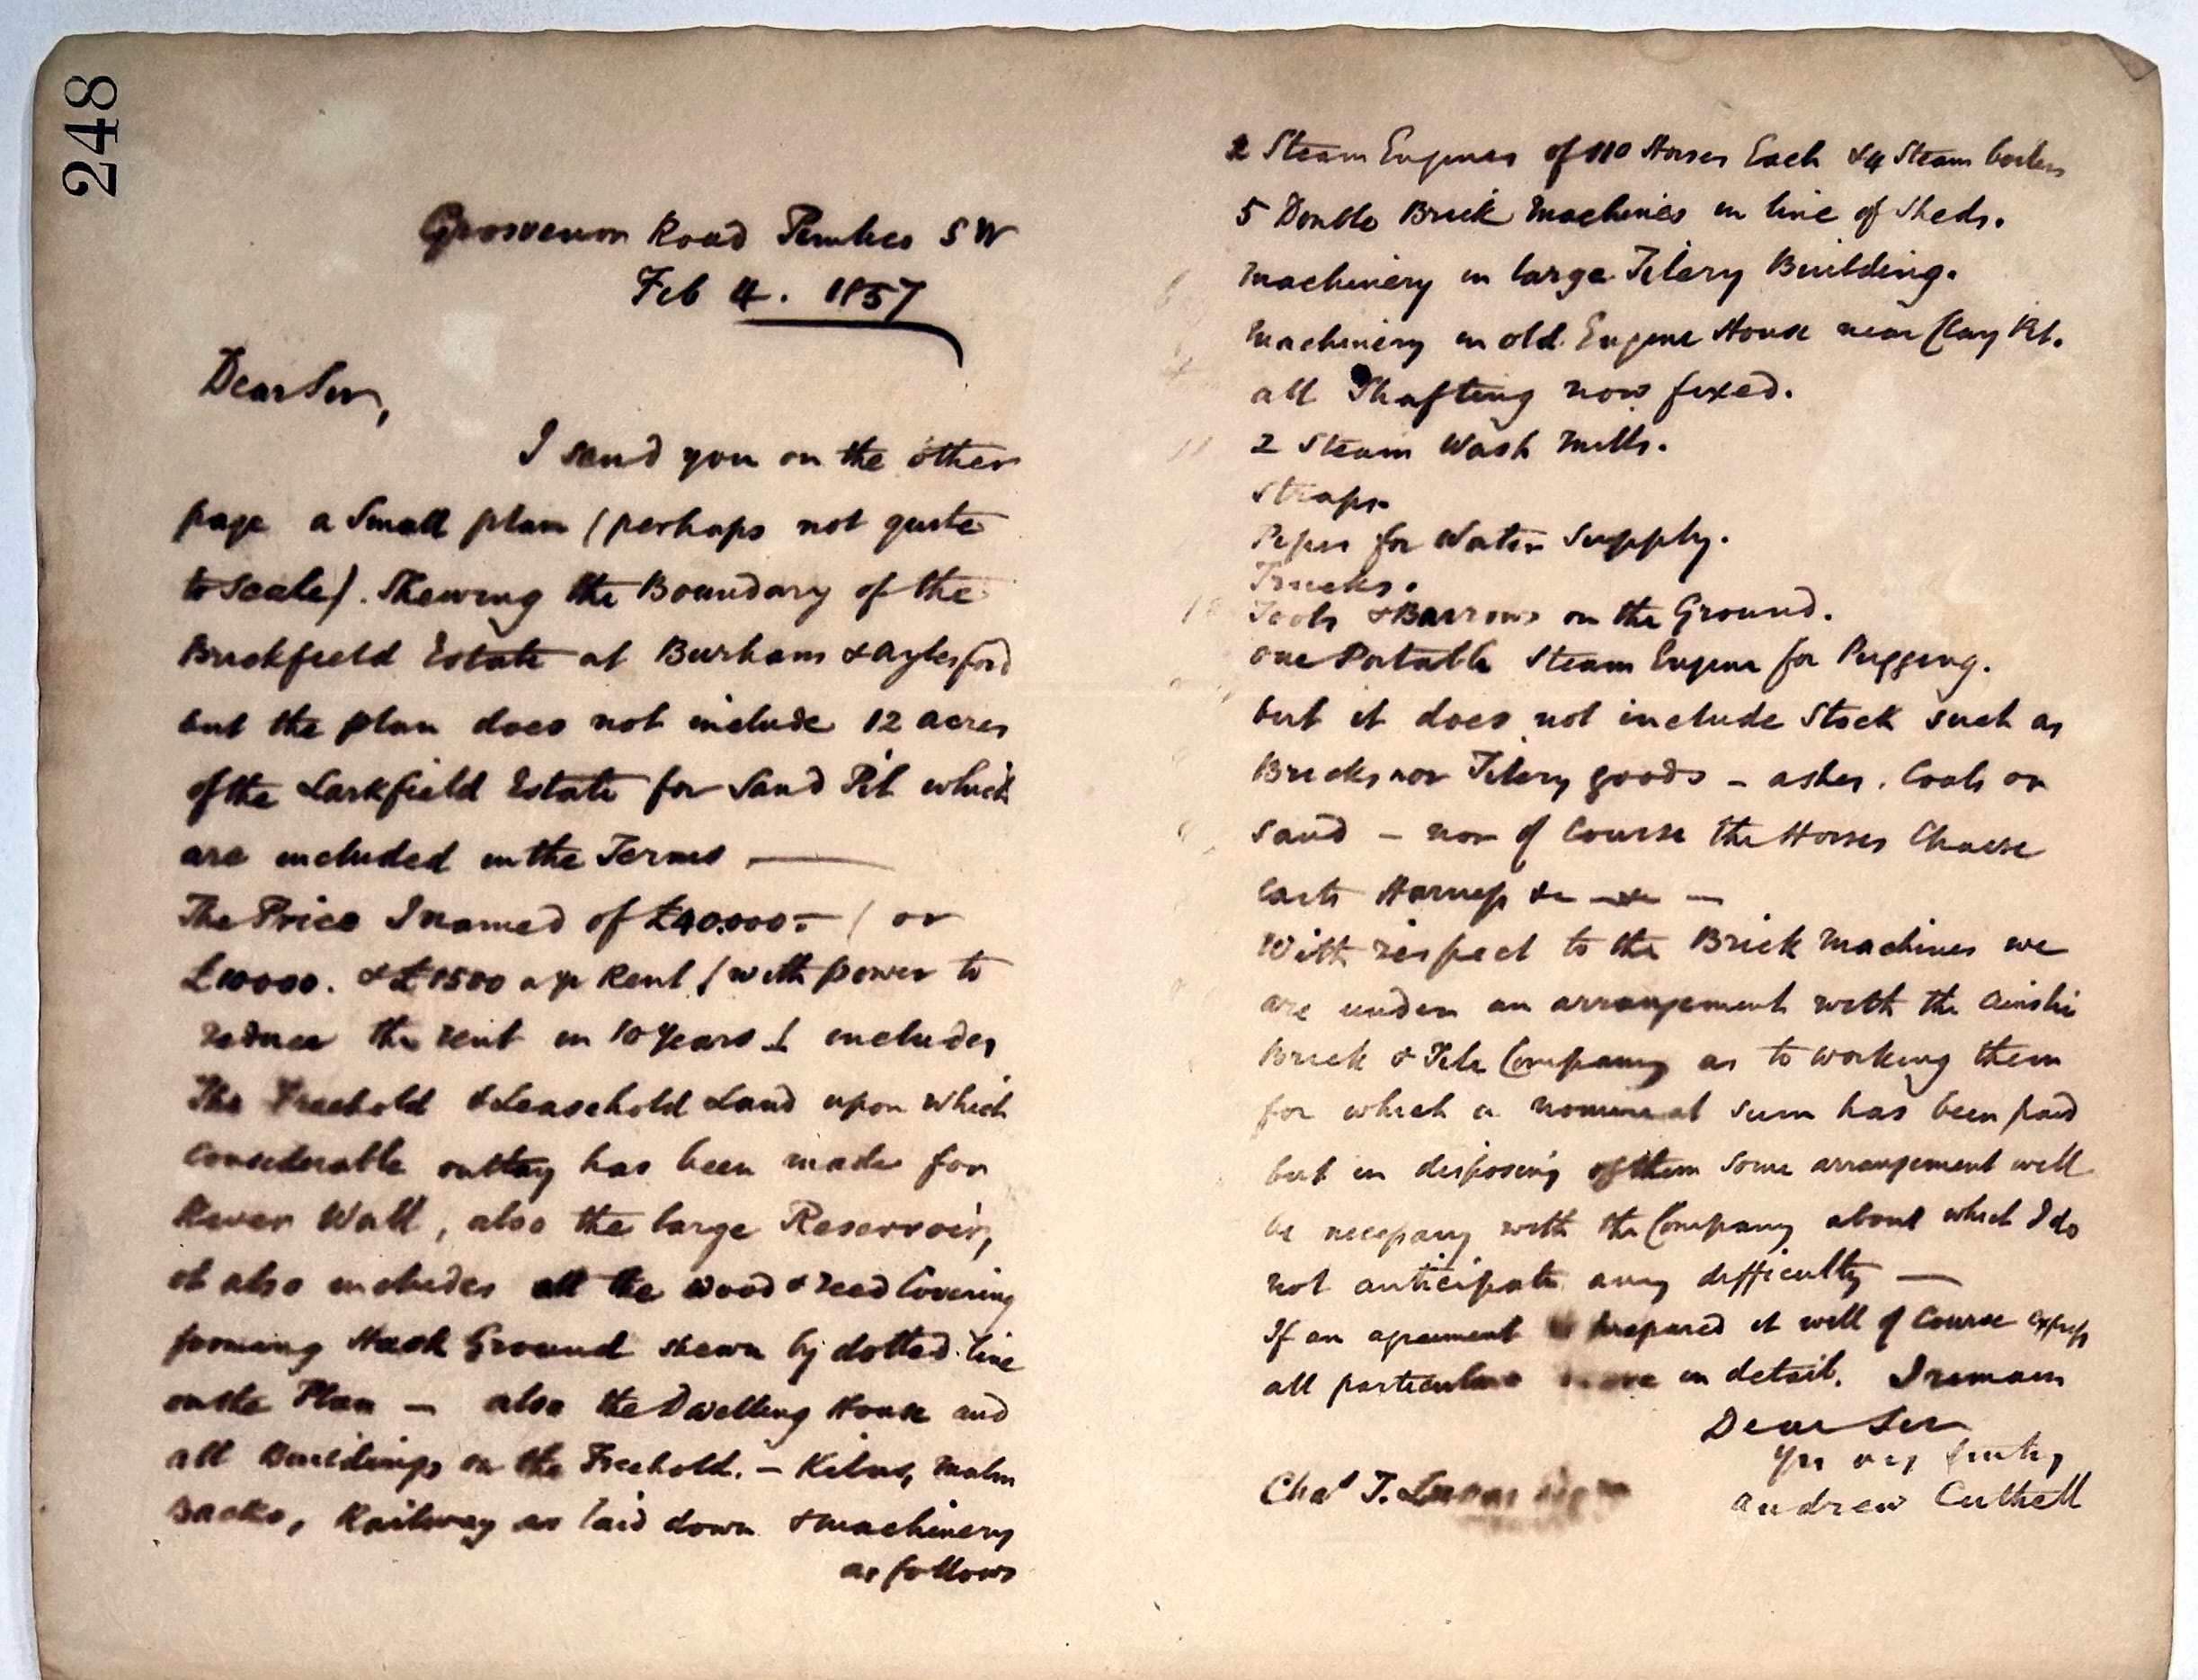 248
Grosvenor Road Pimlico S W
Feb 4. 1857
Dear Sir,
I send you on the other
page a Small plan (perhaps not quite
to scale). Shewing the Boundary of the
Brickfield Estate at Burham & Aylesford
but the plan does not include 12 acres
of the Larkfield Estate for Sand Pit which
are included in the Terms —
The Price I named of £40.000 - ( or
£10000. & £1500 a yr Rent ( with power to
reduce the rent in 10 Years ) includes
The Freehold & Leasehold Land upon which
Considerable outlay has been made for
River Wall, also the large Reservoir,
it also includes all the wood & reed Covering
forming Hack Ground shewn by dotted line
on the Plan — also the Dwelling House and
all Buildings on the Freehold. — Kilns, Malm
Backs, Railway as laid down & machinery
as follows
2 Steam Engines of 110 Horses Each & 4 Steam boilers
5 Double Brick Machines in line of Sheds.
Machinery in large Tilery Building.
Machinery in old Engine House near Clay Pit.
all Shafting now fixed.
2 Steam Wash Mills.
Straps.
Pipes for Water Supply.
Trucks.
Tools & Barrows on the Ground.
one Portable Steam Engine for Pugging.
but it does not include Stock such as
Bricks nor Tilery goods – ashes. Coals or
Sand – nor of Course the Horses Chaise
Carts Harness &c — &c —
With respect to the Brick Machines we
are under an arrangement with the Ainslie
Brick & Tile Company as to working them
for which a nominal sum has been paid
but in disposing of them some arrangement will
be necessary with the Company about which I do
not anticipate any difficulty —
If an agreement is prepared it will of Course express
all particulars more in detail. I remain
Dear Sir
Yrs very truly
Andrew Cuthell
Chas T. Lucas